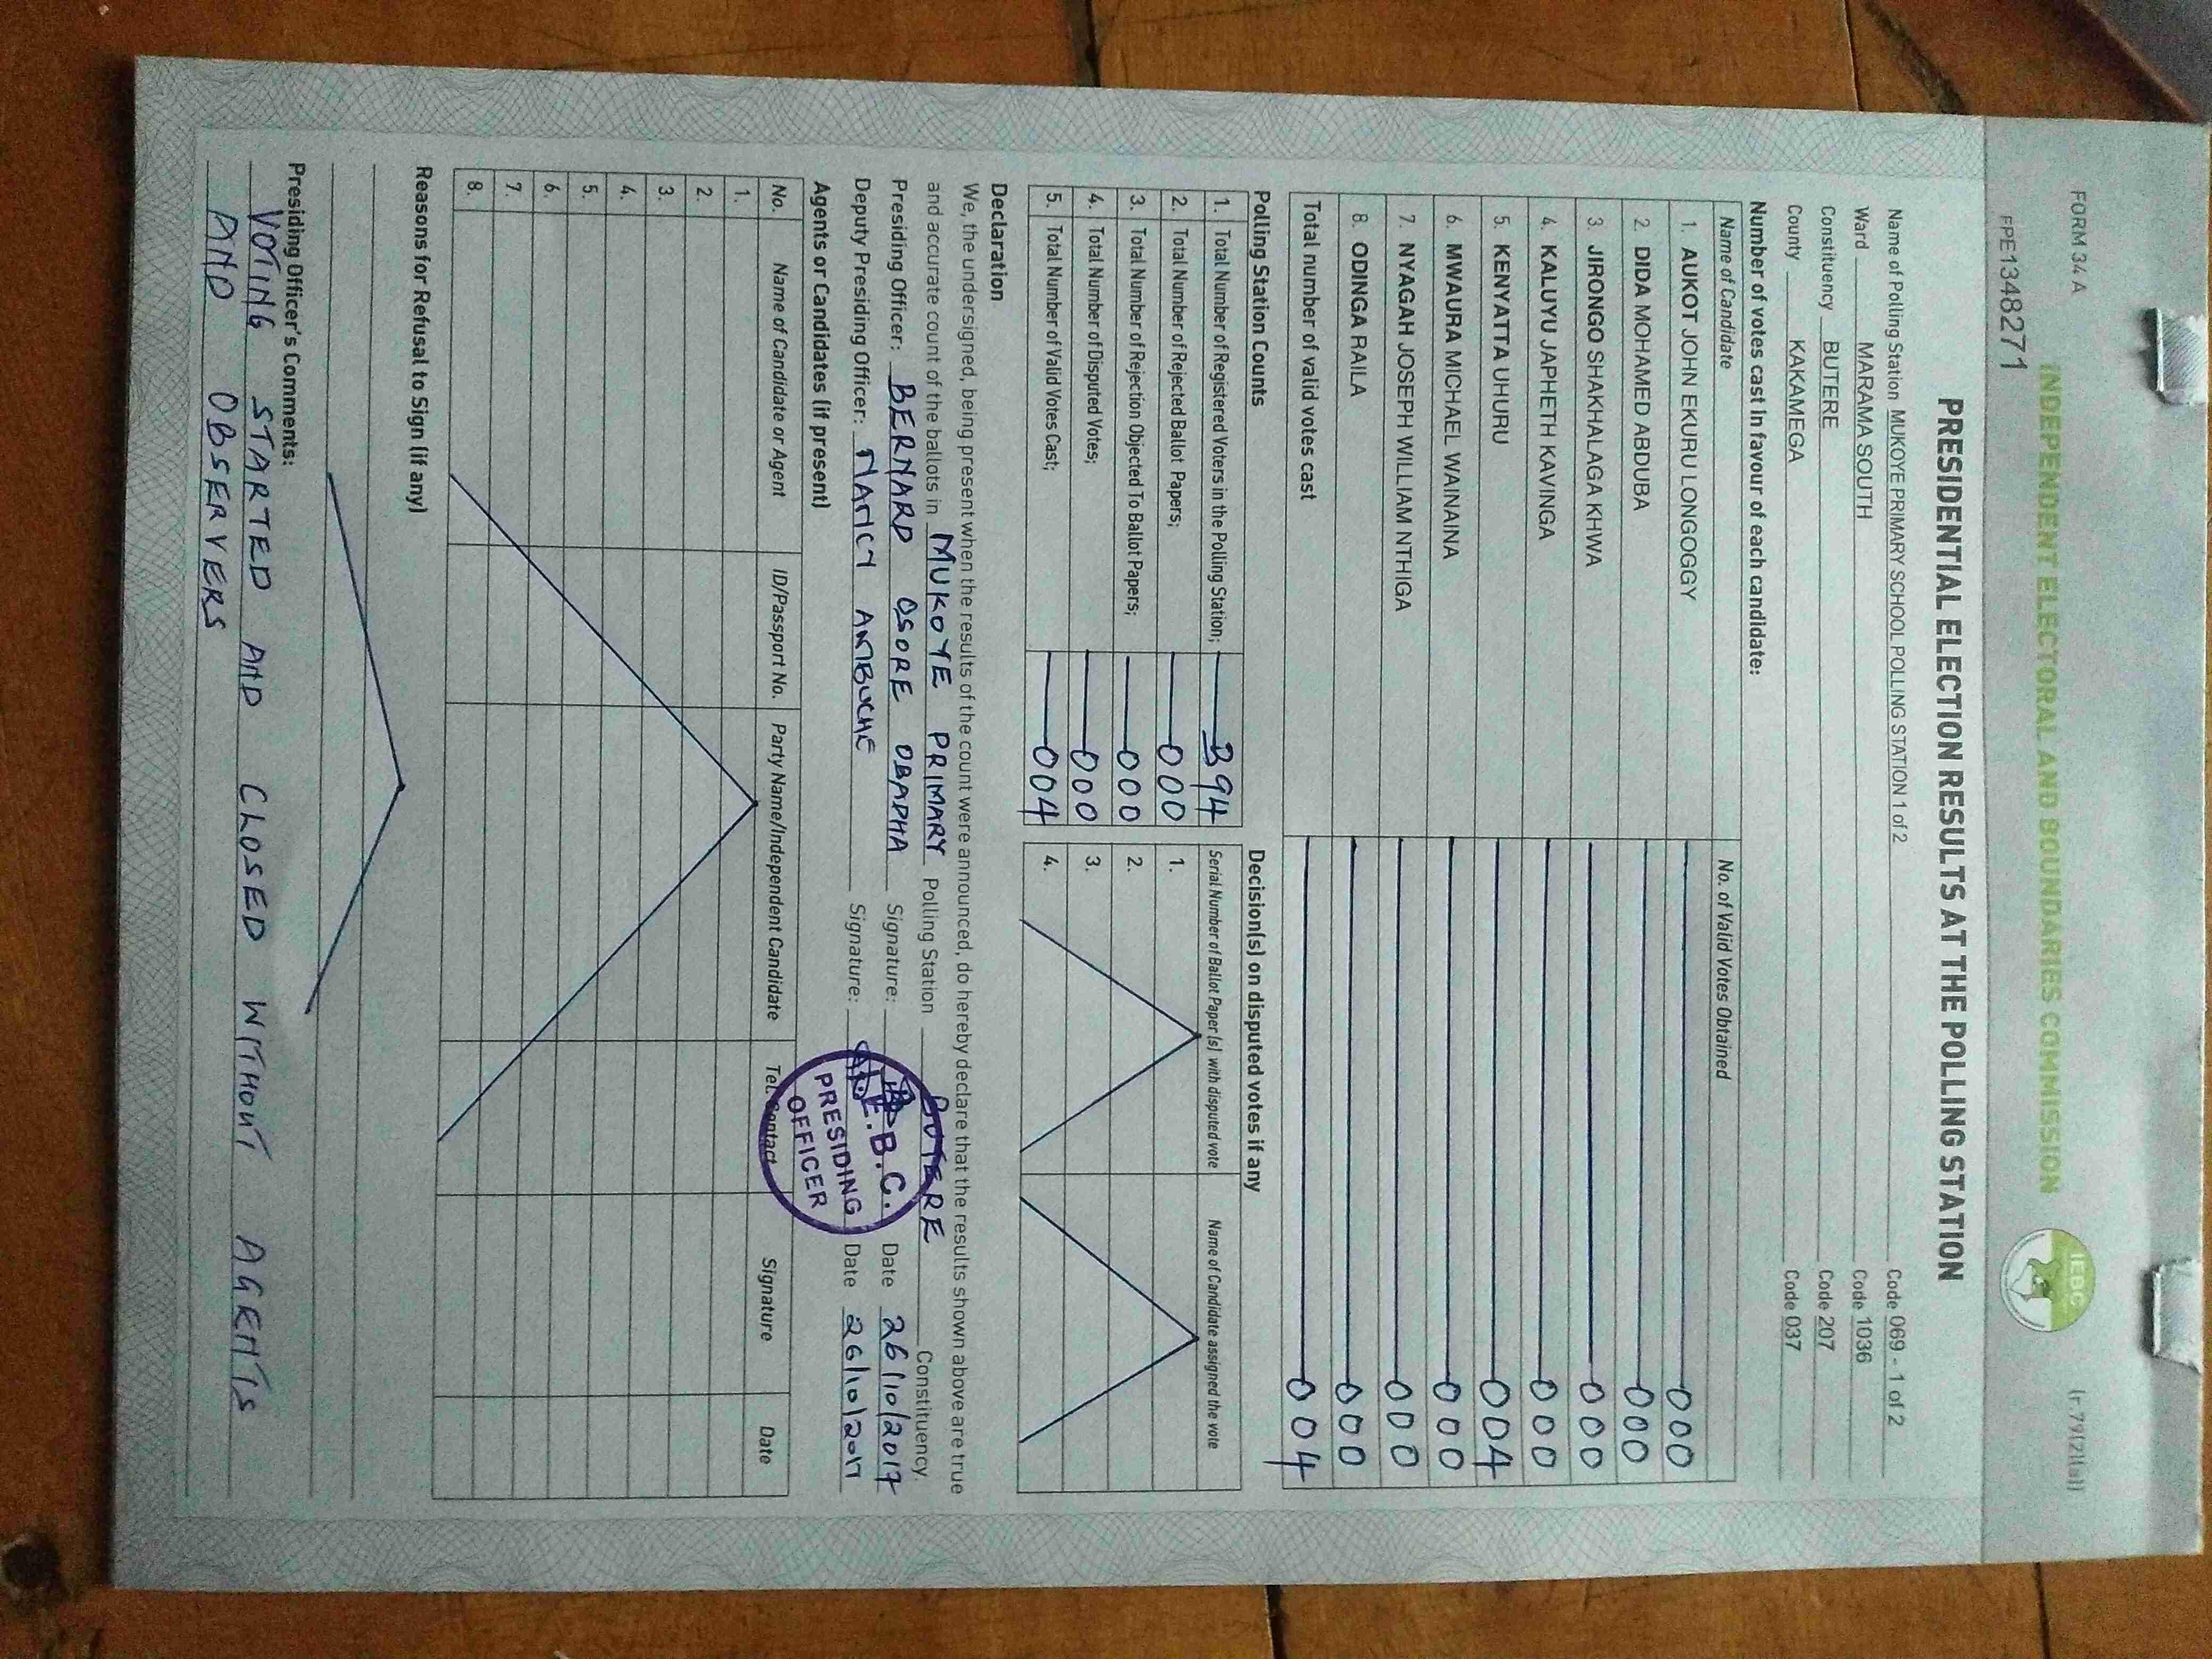 FORM 34 A
(r 79(2)(a))
INDEPENDENT ELECTORAL AND BOUNDARIES COMMISSION
IEBC
FPE1348271
PRESIDENTIAL ELECTION RESULTS AT THE POLLING STATION
Name of Polling Station MUKOYE PRIMARY SCHOOL POLLING STATION 1 of 2 Code 069 - 1 of 2
Ward MARAMA SOUTH Code 1036
Constituency BUTERE Code 207
County KAKAMEGA Code 037
Number of votes cast in favour of each candidate:
Name of Candidate No. of Valid Votes Obtained
1. AUKOT JOHN EKURU LONGOGGY 000
2. DIDA MOHAMED ABDUBA 000
3. JIRONGO SHAKHALAGA KHWA 000
4. KALUYU JAPHETH KAVINGA 000
5. KENYATTA UHURU 004
6. MWAURA MICHAEL WAINAINA 000
7. NYAGAH JOSEPH WILLIAM NTHIGA 000
8. ODINGA RAILA 000
Total number of valid votes cast 004
Polling Station Counts Decision(s) on disputed votes if any
1. Total Number of Registered Voters in the Polling Station; 394 Serial Number of Ballot Paper (s) with disputed vote Name of Candidate assigned the vote
2. Total Number of Rejected Ballot Papers; 000 1.
3. Total Number of Rejection Objected To Ballot Papers; 000 2.
4. Total Number of Disputed Votes; 000 3.
5. Total Number of Valid Votes Cast; 004 4.
Declaration
We, the undersigned, being present when the results of the count were announced, do hereby declare that the results shown above are true
and accurate count of the ballots in MUKOYE PRIMARY Polling Station BUTERE Constituency.
Presiding Officer: BERNARD OSORE Signature: Date 26/10/2017
Deputy Presiding Officer: NANCY Signature: Date 26/10/2017
B.C.
PRESIDING
OFFICER
Agents or Candidates (if present)
No. Name of Candidate or Agent ID/Passport No. Party Name/Independent Candidate Tel. Contact Signature Date
1.
2.
3.
4.
5.
6.
7.
8.
Reasons for Refusal to Sign (if any)
Presiding Officer's Comments:
VOTING STARTED AND CLOSED WITHOUT AGENTS
AND OBSERVERS